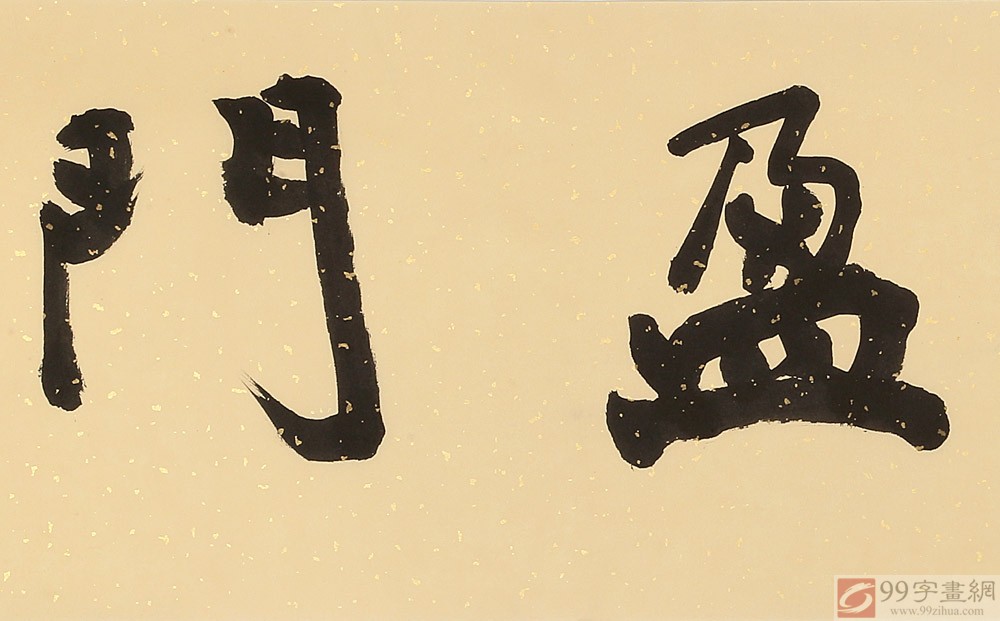 盈門
99字畫網
www.99zihua.com